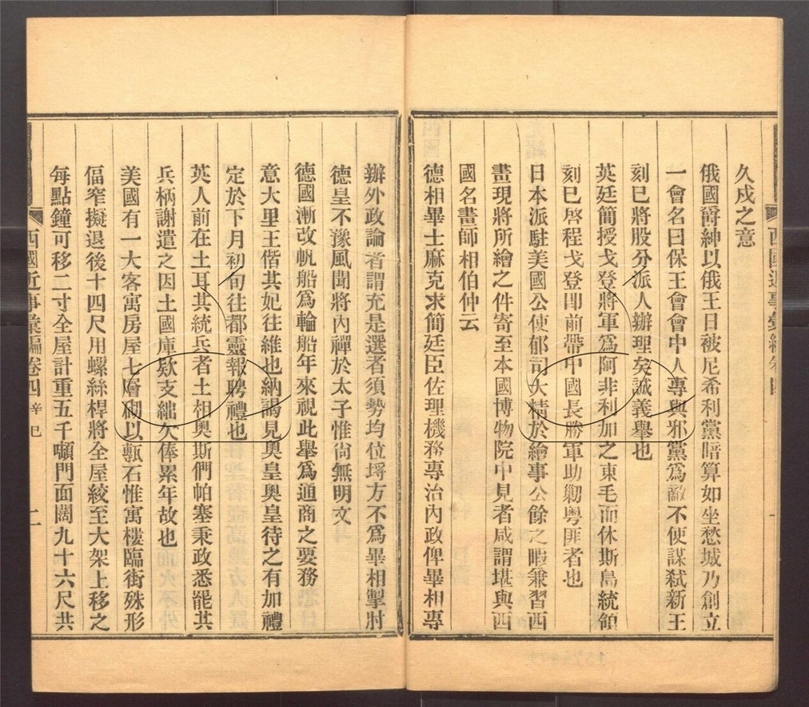 久戍之意
俄國爵紳以俄王日被尼希利黨暗算如坐愁城乃創立
一會名曰保王會會中人專與邪黨爲敵不使謀弒新王
刻巳將股分派人辦理矣誠義舉也
英廷簡授戈登將軍爲阿非利加之東毛而休斯島統領
刻巳啓程戈登卽前帶中國長勝軍助勦粤匪者也
日本派駐美國公使郁司大精於繪事公餘之暇兼習西
畫現將所繪之件寄至本國博物院中見者咸謂堪與西
國名畫師相伯仲云
德相畢士麻克求簡廷臣佐理機務專治內政俾畢相專
辦外政論者謂充是選者須勢均位埒方不爲畢相掣肘
德皇不豫風聞將內禪於太子惟尙無明文
德國漸改帆船爲輪船年來視此舉爲通商之要務
意大里王偕其妃往維也納謁見奧皇奧皇待之有加禮
定於下月初旬往都靈報聘禮也
英人前在土耳其統兵者土相奧斯們帕塞秉政悉罷其
兵柄謝遣之因土國庫欵支絀欠俸累年故也
美國有一大客寓房屋七層砌以甎石惟寓樓臨街殊形
偪窄擬退後十四尺用螺絲桿將全屋絞至大架上移之
每點鐘可移二寸全屋計重五千噸門面闊九十六尺共
西國近事彙編卷四 辛巳 二